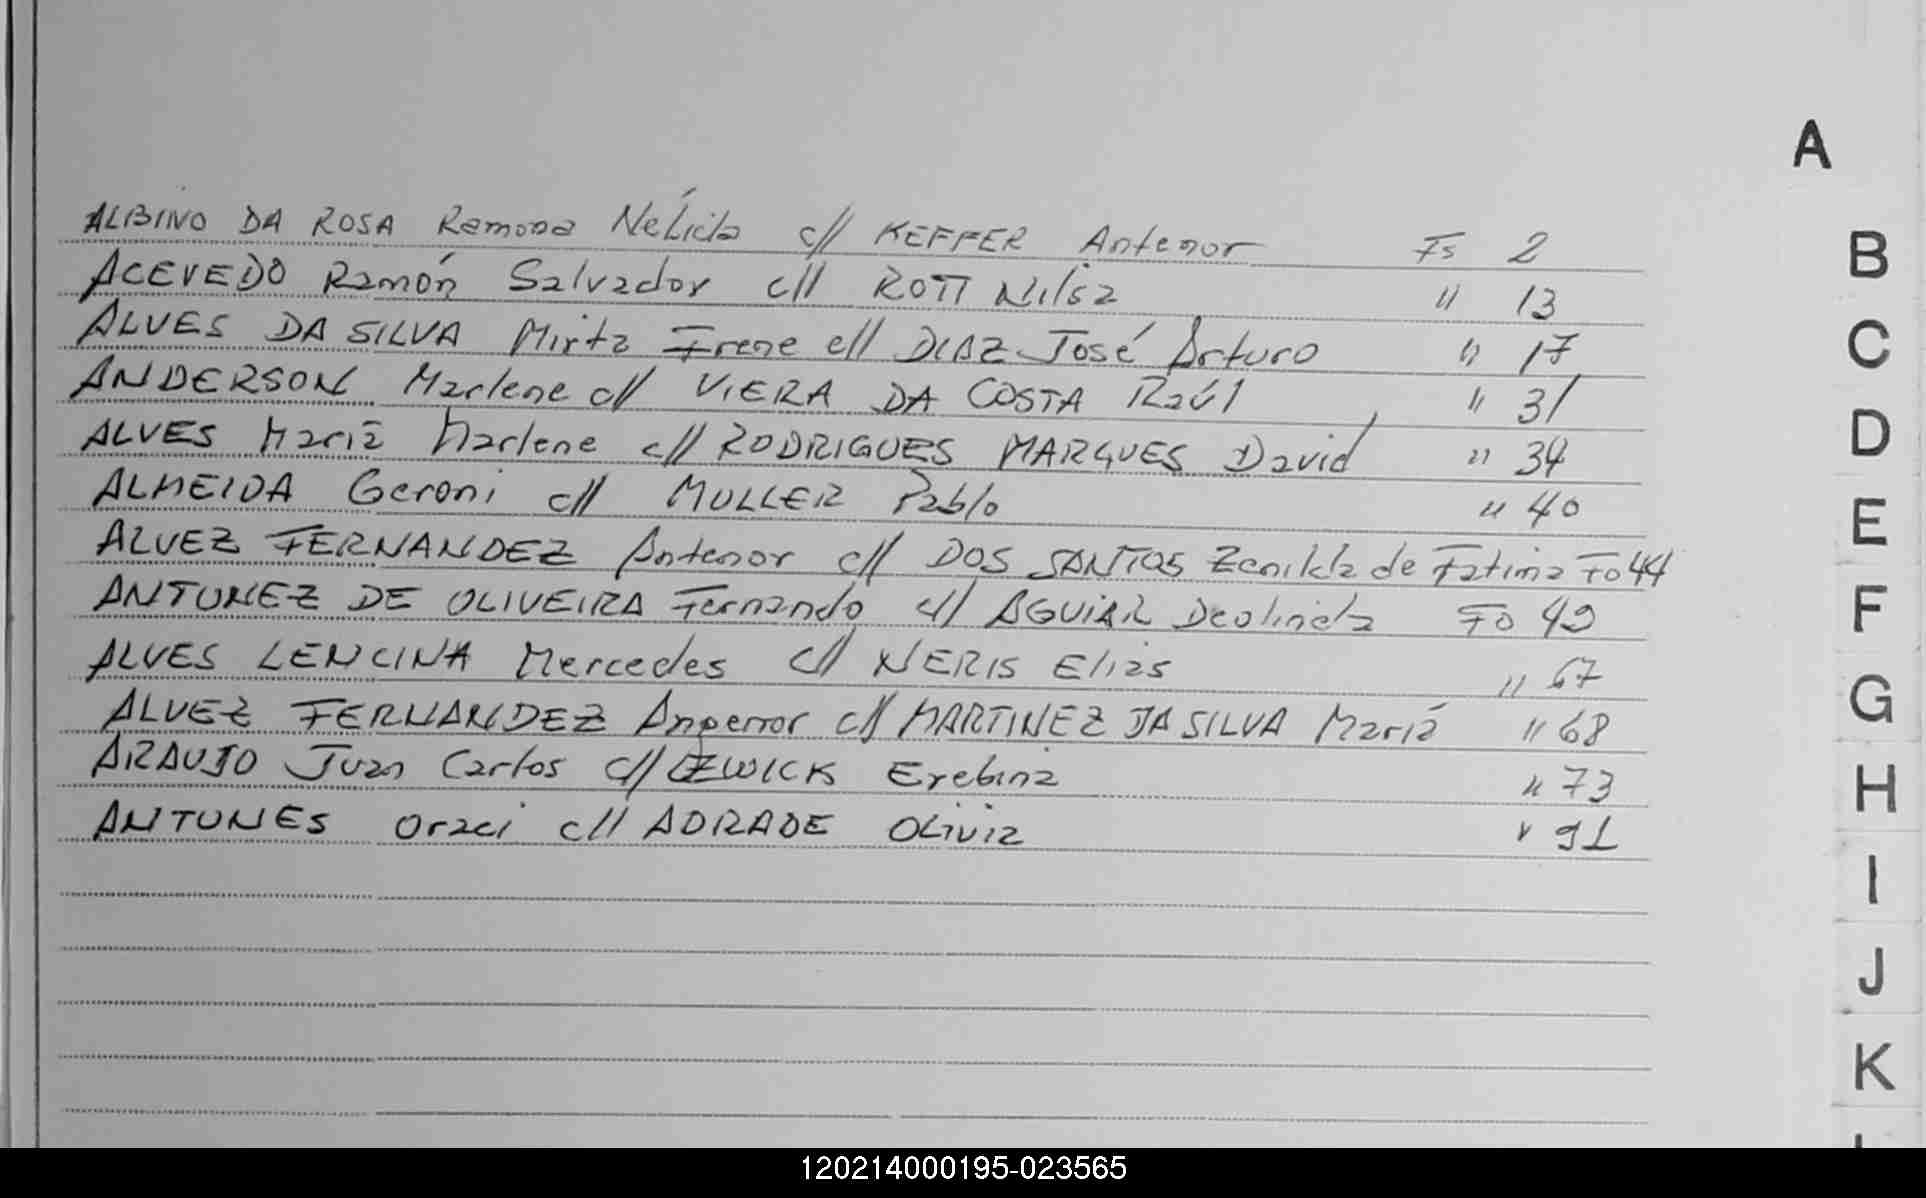 A
ALBINO DA ROSA Ramona Nélida c// KEFFER Antenor Fs 2
ACEVEDO Ramón Salvador c// ROTT Nilsa " 13
ALVES DA SILVA Mirta Irene c// DIAZ José Arturo " 17
ANDERSON Marlene c// VIERA DA COSTA Raúl " 31
ALVES María Marlene c// RODRIGUES MARQUES David " 34
ALMEIDA Geroni c// MULLER Pablo " 40
ALVEZ FERNANDEZ Antenor c// DOS SANTOS Zenilda de Fatima Fo 44
ANTUNEZ DE OLIVEIRA Fernando c// AGUIAR Deolinda Fo 49
ALVES LENCINA Mercedes c// NERIS Elias " 67
ALVEZ FERNANDEZ c// MARTINEZ DA SILVA María " 68
ARAUJO Juan Carlos c// ZWICK " 73
ANTUNES Oraci c// ADRADE Olivia " 91
B
C
D
E
F
G
H
I
J
K
120214000195-023565